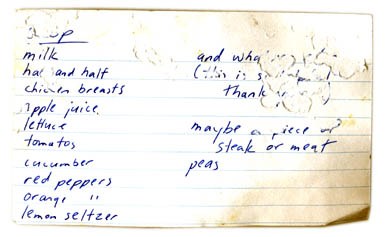 milk
half and half
chicken breasts
apple juice
lettuce
tomatos
cucumber
red peppers
orange "
lemon seltzer
and
(this is
thank
maybe a piece of
steak or meat
peas